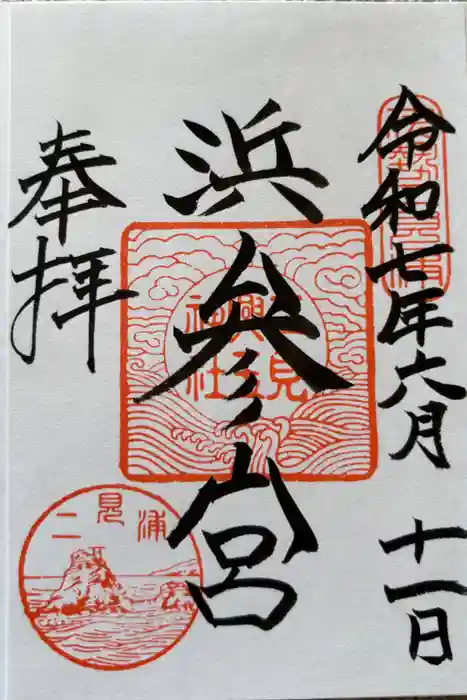 令和七年六月十一日
浜参宮
奉拝
二見興玉神社
二見浦